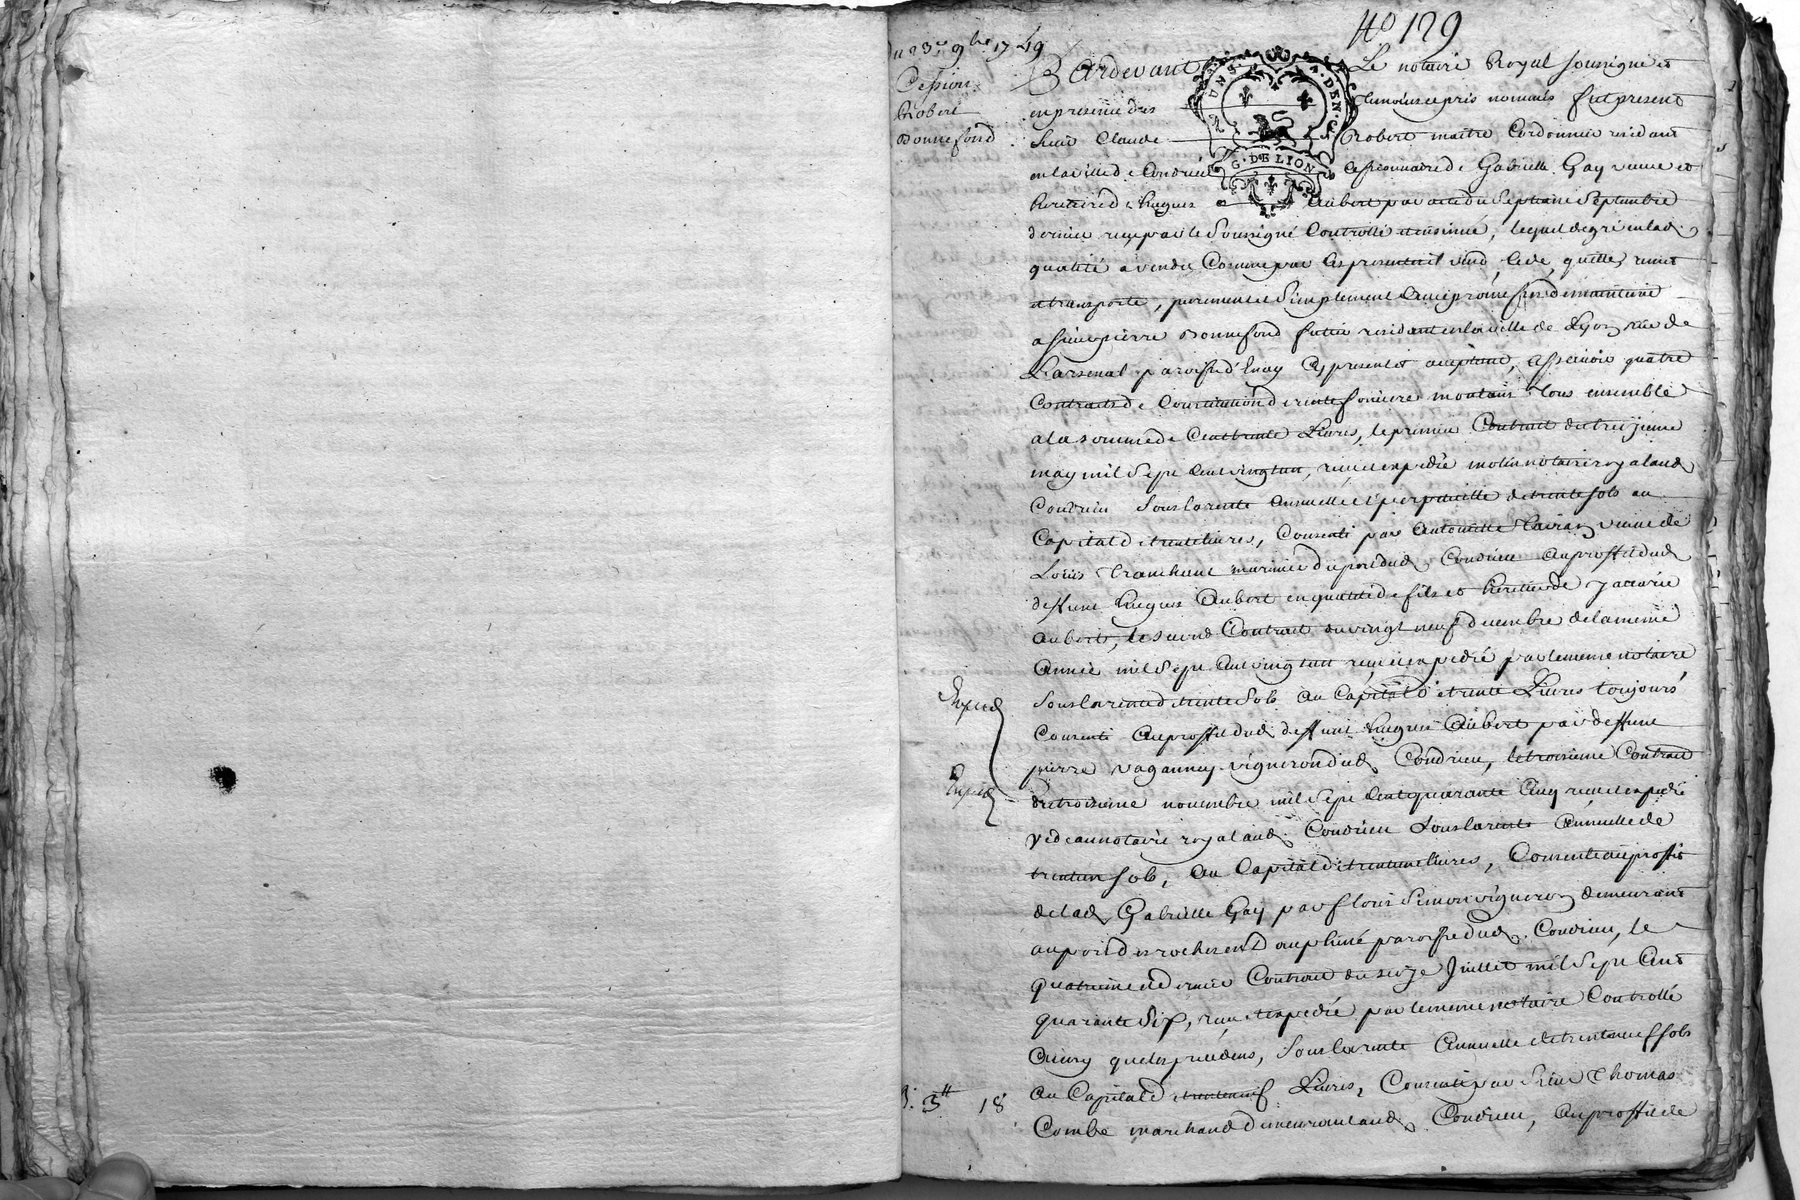 No 129
du 23e 9bre 1749
Cession
Robert
Bonnefond
UN S. A. DEN. C
G. DE LION
Pardevant Le notaire Royal soussigné et
en presence des temoins cy apres nommés fut present
Sieur Claude Robert maitre Cordonnier residant
en la ville de Condrieu cessionnaire de Gabrielle Gay veuve et
heritiere de hugues Aubert par acte du septieme Septembre
dernier reçu par le soussigné Controllé et insinué, lequel de gré en lad
qualité a vendu Comme par les presentes il vend, cede, quitte, remet
et transporte, purement et simplement avec promesse de maintenir
a sieur pierre Bonnefond residant en la ville de Lyon rue de
L'arsenal paroisse d'Enay cy present et aceptant, assavoir quatre
Contracts de Constitution de rente fonciere montans tous ensemble
a la somme de Cent trente Livres, le premier Contract du treizieme
may mil sept cent vingt un, reçu et expedié molin notaire royal aud
Condrieu sous la rente annuelle et perpetuelle de trente sols au
Capital de trente livres, Consenti par Antoinette veuve de
Louis Tranchant marinier du port dud Condrieu au proffit dud
deffunt hugues Aubert en qualité de fils et heritier de Zacarie
Aubert, le second Contract du vingt neuf decembre de la meme
Année mil sept cent vingt un reçu et expedié par le meme notaire
sous la rente de trente sols au Capital de trente Livres toujours
Consenti au proffit dud deffunt hugues Aubert par deffunt
pierre vaganney vigneron dud Condrieu, le troisieme Contract
du troisieme novembre mil sept cent quarante Cinq reçu et expedié
vedeau notaire royal aud Condrieu sous la rente Annuelle de
trente un sols, au Capital de trente une livres, Consenti au proffit
de lad Gabrielle Gay par Louis Simon vigneron demeurant
au port des roches en Dauphiné paroisse dud Condrieu, le
quatrieme et dernier Contract du seize Juillet mil sept Cent
quarante Six, reçu et expedié par le meme notaire Controllé
ainsy que les precedens, sous la rente Annuelle de trente neuf sols
au Capital de trente neuf Livres, Consenti par Sieur Thomas
Combe marchand demeurant aud Condrieu, au proffit de
Expedié
Expedié
3# 18